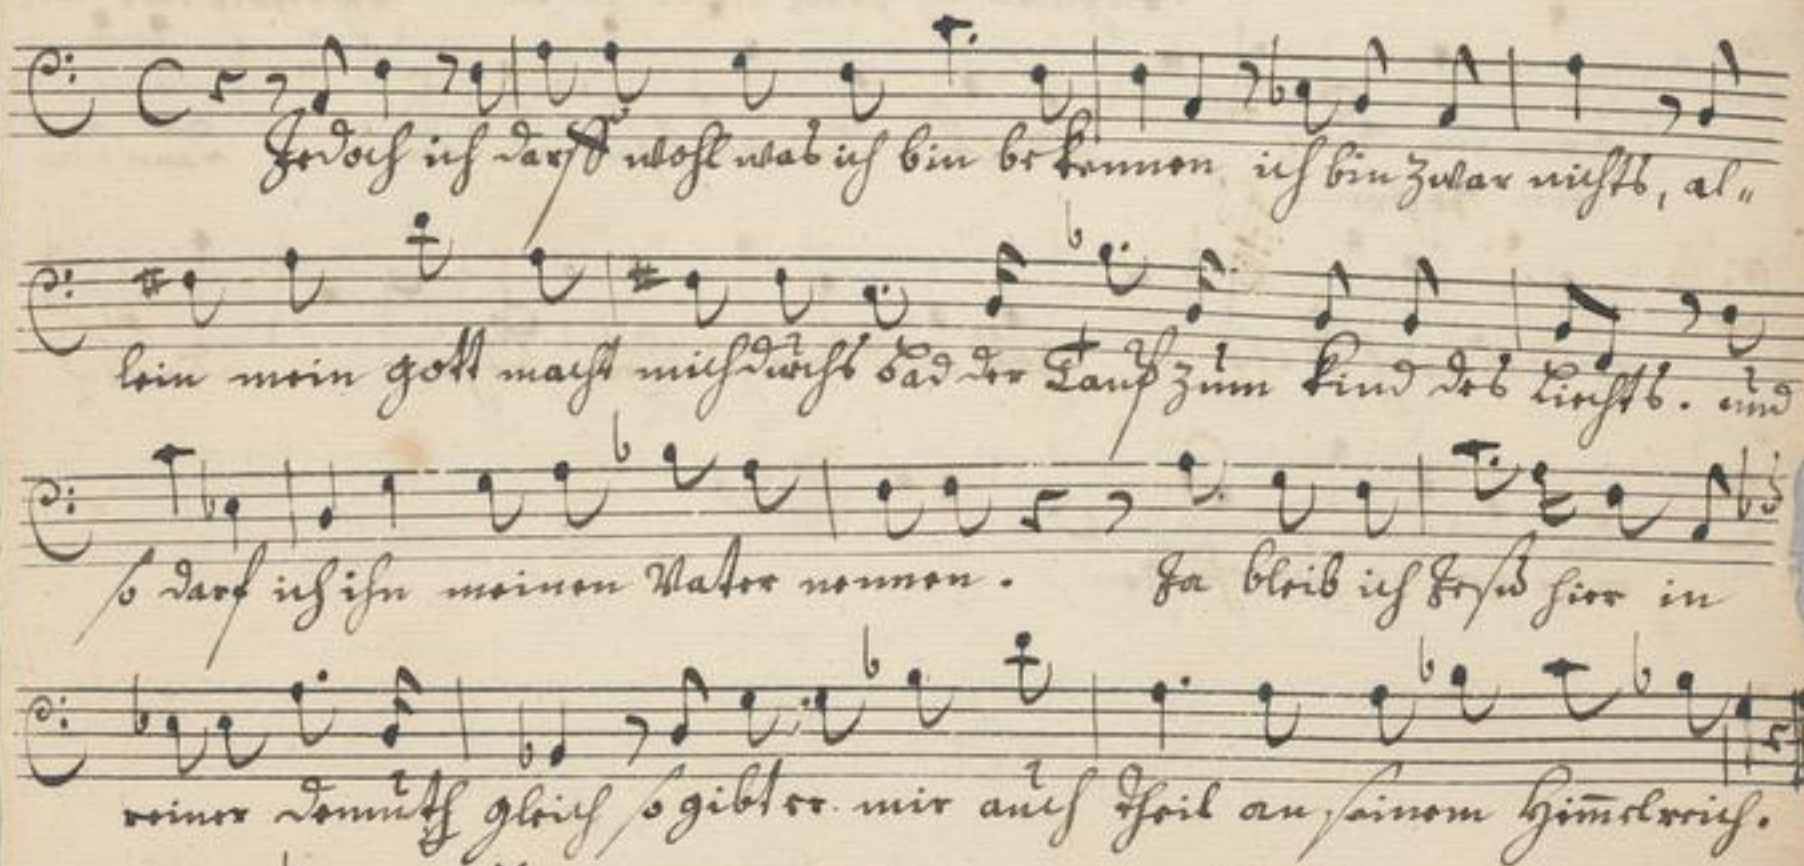 Jedoch ich darff wohl was ich bin bekennen ich bin zwar nichts, al„
lein mein gott macht mich durchs bad der Tauf zum kind des liechts. und
so darf ich ihn meinen Vater nennen. Ja bleib ich Jesu hier in
reiner demuth gleich so gibt er mir auch theil an seinem Him̅elreich.